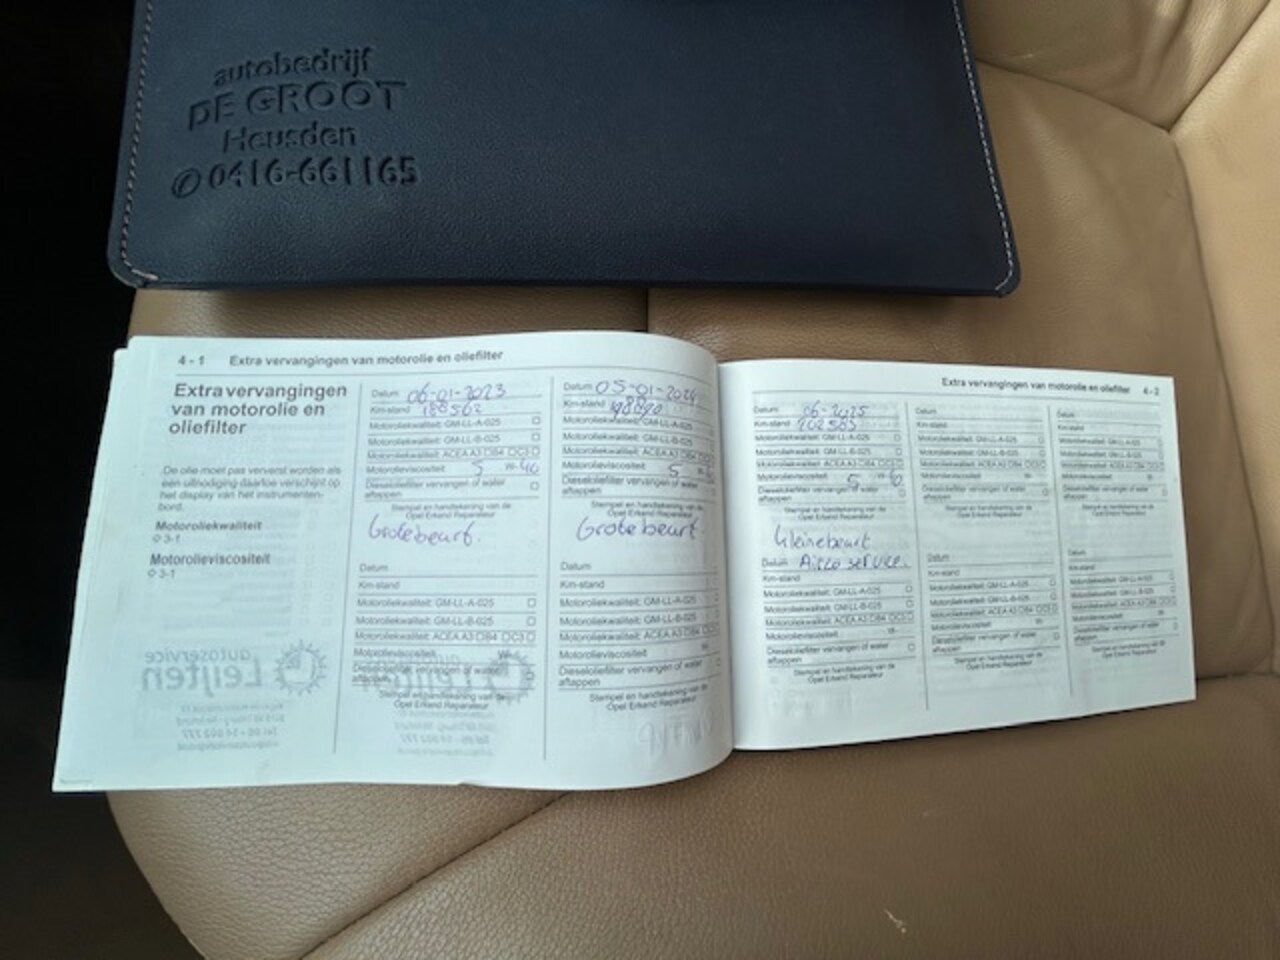 autobedrijf
DE GROOT
Heusden
✆ 0416-661165
4 - 1 Extra vervangingen van motorolie en oliefilter
Extra vervangingen
van motorolie en
oliefilter
De olie moet pas ververst worden als
een uitnodiging daartoe verschijnt op
het display van het instrumenten-
bord.
Motoroliekwaliteit
3-1
Motorolieviscositeit
3-1
Datum 06-01-2023
Km-stand 188562
Motoroliekwaliteit: GM-LL-A-025
Motoroliekwaliteit: GM-LL-B-025
Motoroliekwaliteit: ACEA A3 B4 C3
Motorolieviscositeit 5 W-40
Dieseloliefilter vervangen of water
aftappen
Stempel en handtekening van de
Opel Erkend Reparateur
Grote beurt.
Datum
Km-stand
Motoroliekwaliteit: GM-LL-A-025
Motoroliekwaliteit: GM-LL-B-025
Motoroliekwaliteit: ACEA A3 B4 C3
Motorolieviscositeit W-
Dieseloliefilter vervangen of water
aftappen
Stempel en handtekening van de
Opel Erkend Reparateur
Datum 05-01-2024
Km-stand
Motoroliekwaliteit: GM-LL-A-025
Motoroliekwaliteit: GM-LL-B-025
Motoroliekwaliteit: ACEA A3 B4 C3
Motorolieviscositeit 5 W-
Dieseloliefilter vervangen of water
aftappen
Stempel en handtekening van de
Opel Erkend Reparateur
Grote beurt.
Datum
Km-stand
Motoroliekwaliteit: GM-LL-A-025
Motoroliekwaliteit: GM-LL-B-025
Motoroliekwaliteit: ACEA A3 B4 C3
Motorolieviscositeit W-
Dieseloliefilter vervangen of water
aftappen
Stempel en handtekening van de
Opel Erkend Reparateur
Extra vervangingen van motorolie en oliefilter 4 - 2
Datum 06-2025
Km-stand 202583
Motoroliekwaliteit: GM-LL-A-025
Motoroliekwaliteit: GM-LL-B-025
Motoroliekwaliteit: ACEA A3 B4 C3
Motorolieviscositeit 5 W-
Dieseloliefilter vervangen of water
aftappen
Stempel en handtekening van de
Opel Erkend Reparateur
Kleine beurt
Airco service.
Datum
Km-stand
Motoroliekwaliteit: GM-LL-A-025
Motoroliekwaliteit: GM-LL-B-025
Motoroliekwaliteit: ACEA A3 B4 C3
Motorolieviscositeit W-
Dieseloliefilter vervangen of water
aftappen
Stempel en handtekening van de
Opel Erkend Reparateur
Datum
Km-stand
Motoroliekwaliteit: GM-LL-A-025
Motoroliekwaliteit: GM-LL-B-025
Motoroliekwaliteit: ACEA A3 B4 C3
Motorolieviscositeit W-
Dieseloliefilter vervangen of water
aftappen
Stempel en handtekening van de
Opel Erkend Reparateur
Datum
Km-stand
Motoroliekwaliteit: GM-LL-A-025
Motoroliekwaliteit: GM-LL-B-025
Motoroliekwaliteit: ACEA A3 B4 C3
Motorolieviscositeit W-
Dieseloliefilter vervangen of water
aftappen
Stempel en handtekening van de
Opel Erkend Reparateur
Datum
Km-stand
Motoroliekwaliteit: GM-LL-A-025
Motoroliekwaliteit: GM-LL-B-025
Motoroliekwaliteit: ACEA A3 B4 C3
Motorolieviscositeit W-
Dieseloliefilter vervangen of water
aftappen
Stempel en handtekening van de
Opel Erkend Reparateur
Datum
Km-stand
Motoroliekwaliteit: GM-LL-A-025
Motoroliekwaliteit: GM-LL-B-025
Motoroliekwaliteit: ACEA A3 B4 C3
Motorolieviscositeit W-
Dieseloliefilter vervangen of water
aftappen
Stempel en handtekening van de
Opel Erkend Reparateur
autoservice
Leijten